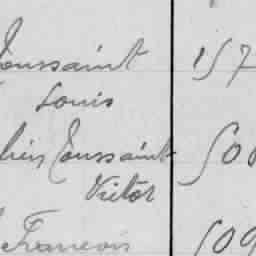 Toussaint 157
Louis
Toussaint 500
Victor
François 509